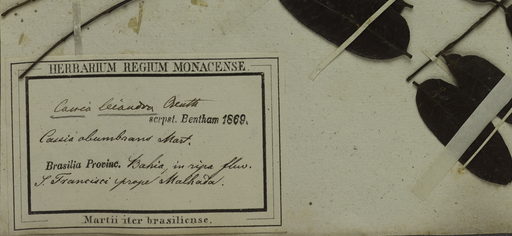 HERBARIUM REGIUM MONACENSE
Cassia leiandra Benth
scrpst. Bentham 1869.
Cassia obumbrans Mart.
Brasilia Provinc. Bahia, in ripa fluv.
S. Francisci prope Malhada.
Martii iter brasiliense.